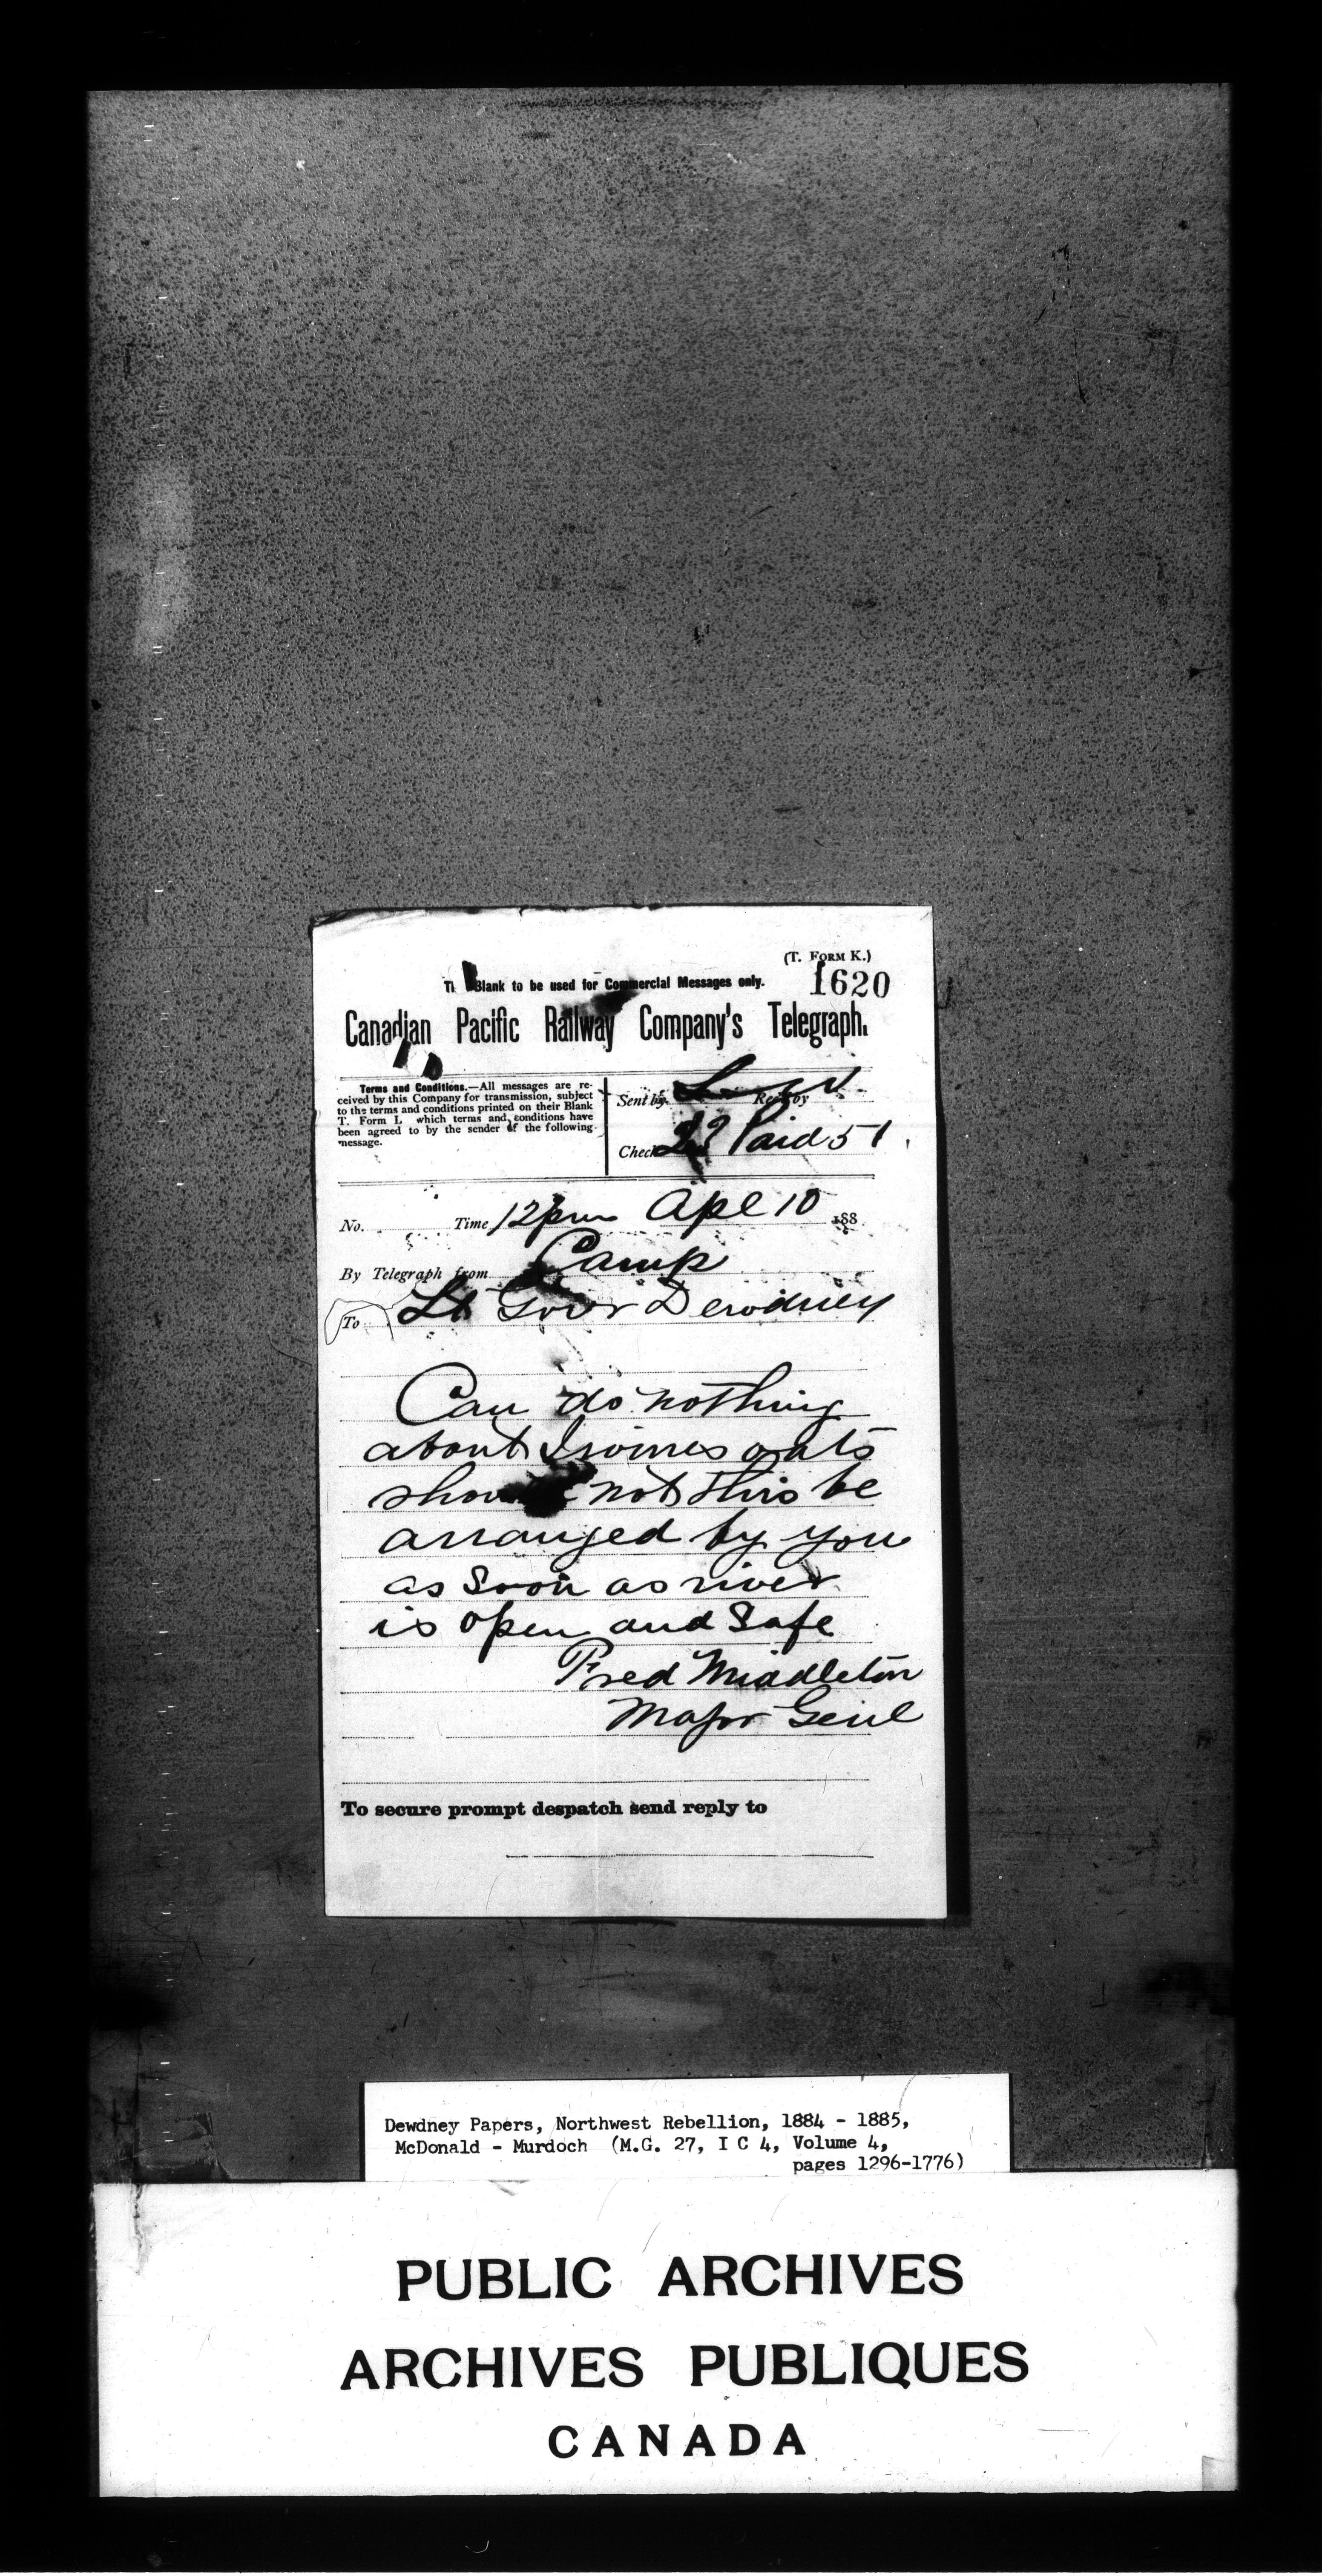 (T. FORM K.)
Blank to be used for Commercial Messages only.
1620
Canadian Pacific Railway Company's Telegraph.
Terms and Conditions.—All messages are re-
ceived by this Company for transmission, subject
to the terms and conditions printed on their Blank
T. Form I., which terms and conditions have
been agreed to by the sender of the following
message.
Sent by Rec'd by
Check Paid 51
No. Time 12pm Apl 10 188
By Telegraph from Camp
To Lt Govr Dewdney
Can do nothing
about oats
should not this be
arranged by you
as soon as river
is open and safe
Fred Middleton
Major Genl
To secure prompt despatch send reply to
Dewdney Papers, Northwest Rebellion, 1884 - 1885,
McDonald - Murdoch (M.G. 27, I C 4, Volume 4,
pages 1296-1776)
PUBLIC ARCHIVES
ARCHIVES PUBLIQUES
CANADA